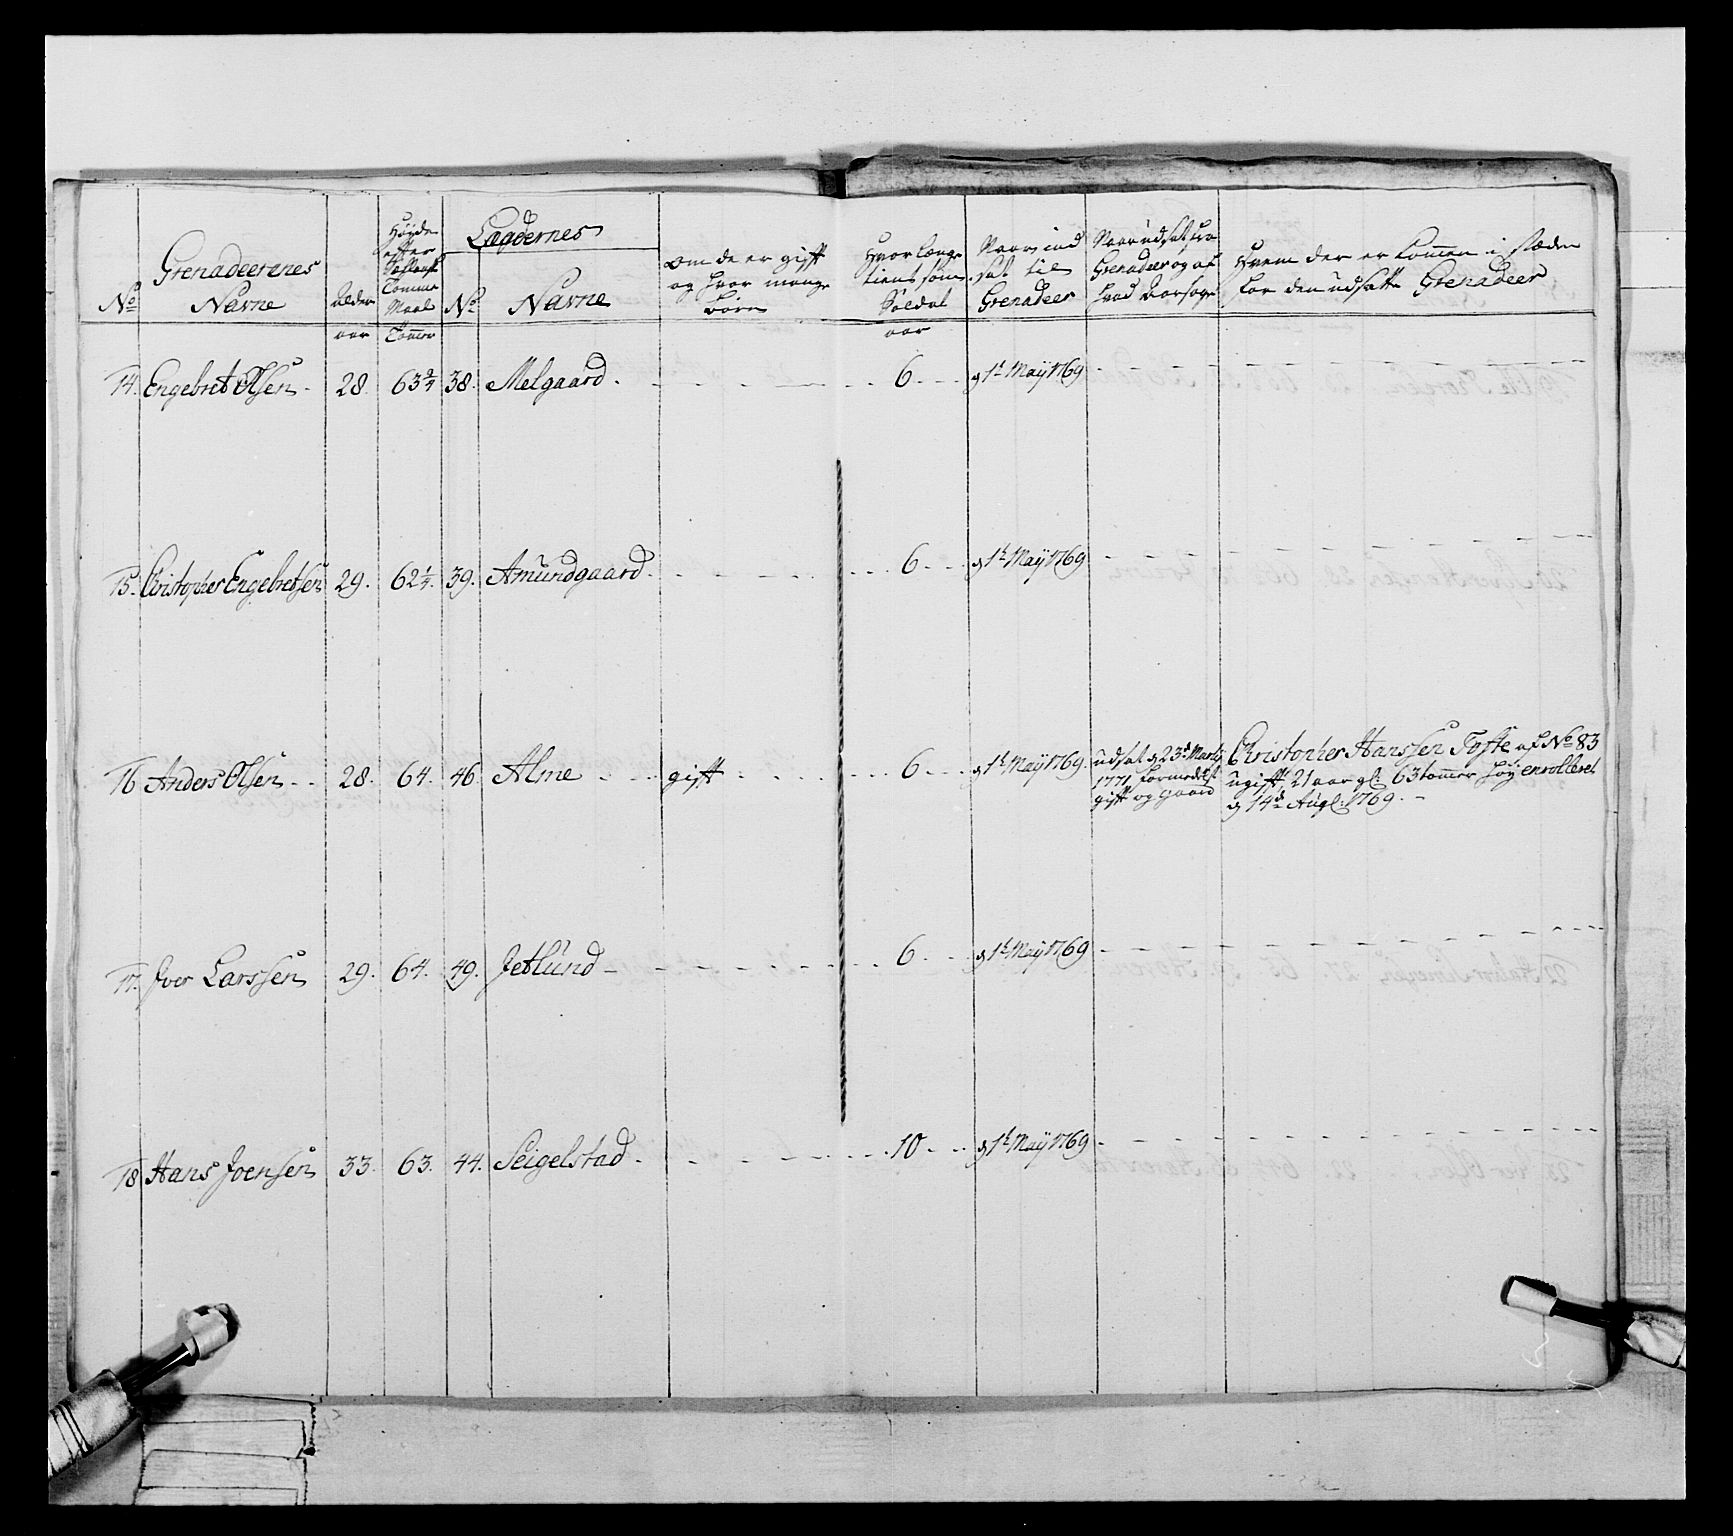 Grenadeernes
No Navne
Alder
aar
Høyde
efter
Tomme
Maal
Tommer
Lægdernes
No Navne
om de er gift
og hvor mange
børn
Hvor længe
tient som
Soldat
aar
Naar ind
sat til
Grenadeer
Naar udsat fra
Grenadeer og af
hvad Aarsage
Hvem der er kommen i stæden
for den udsatte Grenadeer
14. Engebret Olsen 28. 63 3/4 38. Melgaard. 6 d 1t May 1769
15. Christopher Engebretsen 29. 62 1/4 39. Amundgaard. 6 d 1t May 1769
16 Anders Olsen 28. 64. 46. Alme gift 6 d 1t May 1769 udsat d 23d Martij
1771 formedelst
gift og gaard
Christopher Hanssen Tofte af No 83
ugift, 21 aar gl: 63 tommer høy enrolleret
d 14d Augl: 1769.
17. Jver Larssen 29. 64. 49. Jetlund 6 d 1t May 1769
18 Hans Joensen 33. 63. 44. Seigelstad. 10 d 1t May 1769